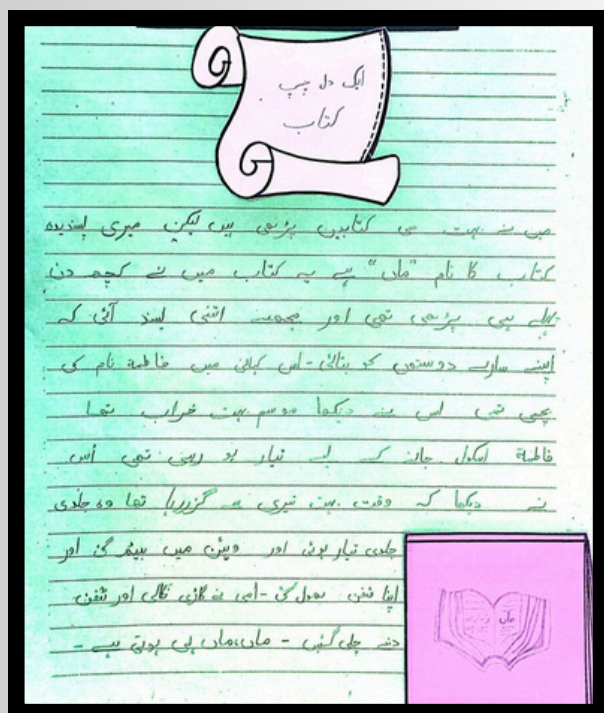 ایک دل چسپ
کتاب
میں نے بہت سی کتابیں پڑھی ہیں لیکن میری پسندیدہ
کتاب کا نام "ماں" ہے یہ کتاب میں نے کچھ دن
پہلے ہی پڑھی تھی اور مجھے اتنی پسند آئی کہ
اپنے سارے دوستوں کو بتائی - اس کہانی میں فاطمة نام کی
بچی تھی اس نے دیکھا موسم بہت خراب تھا
فاطمة اسکول جانے کے لیے تیار ہو رہی تھی اُس
نے دیکھا کہ وقت بہت تیزی سے گزررہا تھا وہ جلدی
جلدی تیار ہوئی اور ویئن میں بیٹھ گئی اور
اپنا ٹفن بھول گئی - امی نے گاڑی نکالی اور ٹفن
دینے چلی گئیں - ماں،ماں ہی ہوتی ہے -
ماں